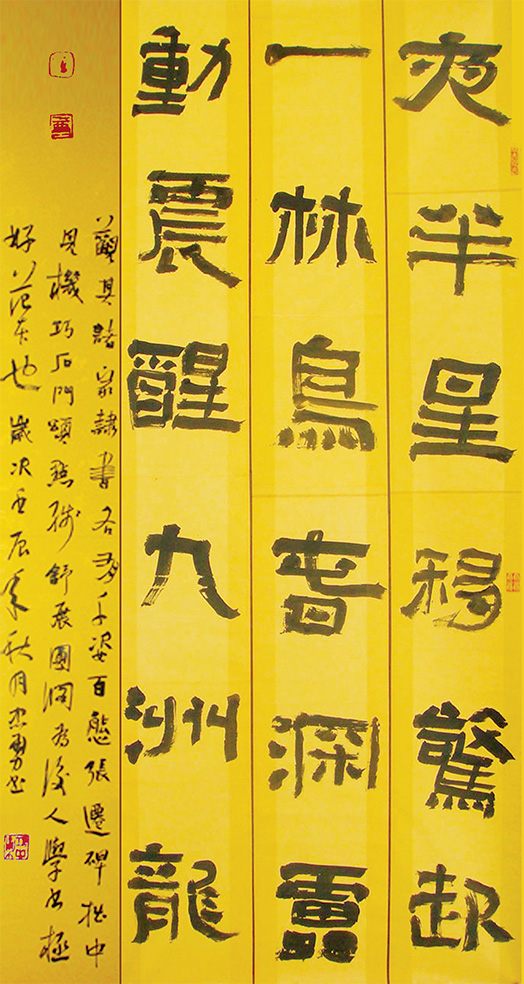 夜半星移驚起
一林鳥音深雷
動震醒九洲龍
觀其諸家隸書各千姿百態張遷碑拙中
見機巧石門頌點線舒展圓潤為後人學書極
好範本也歲次壬辰年秋月勇書